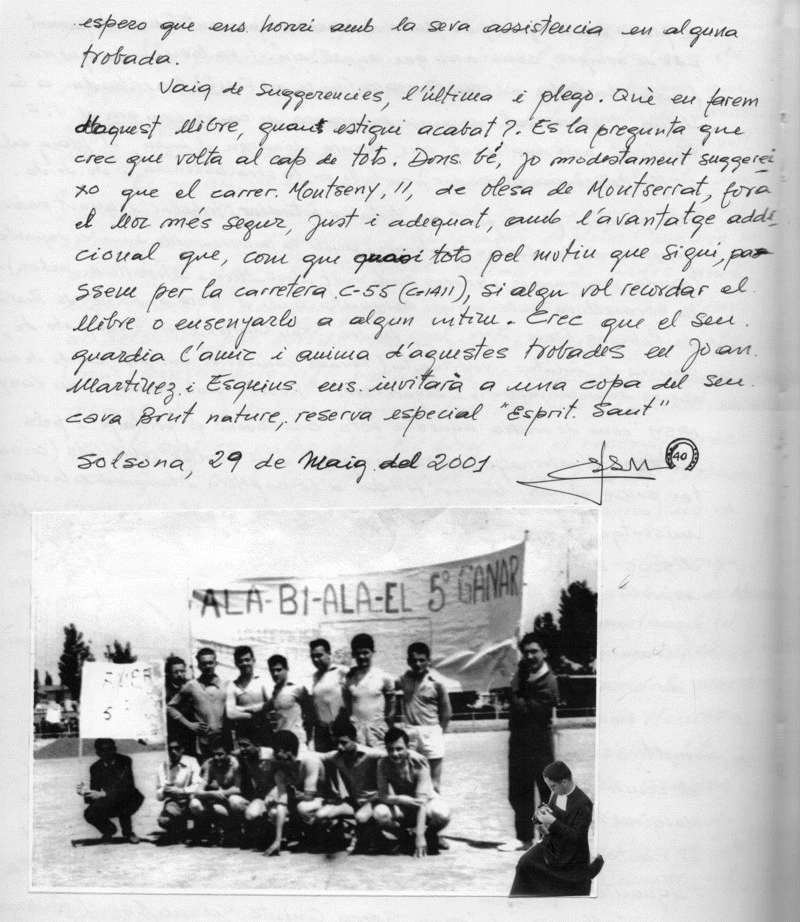 espero que ens honri amb la seva assistencia en alguna
trobada.
Vaig de suggerencies, l'última i plego. Què en farem
d'aquest llibre, quant estigui acabat?. Es la pregunta que
crec que volta al cap de tots. Dons bé, jo modestament suggerei
xo que el carrer. Montseny, 11, de Olesa de Montserrat, fora
el lloc més segur, just i adequat, amb l'avantatge addi-
cional que, com que quasi tots pel motiu que sigui, pas
ssem per la carretera C-55 (C-1411), si algu vol recordar el
llibre o ensenyarlo a algun intim. Crec que el seu
guardia l'amic i anima d'aquestes trobades en Joan
Martinez i Esquius ens invitarà a una copa del seu
cava Brut nature, reserva especial "Esprit Sant"
Solsona, 29 de Maig del 2001
40
ALA-BI-ALA-EL 5º GANAR
5